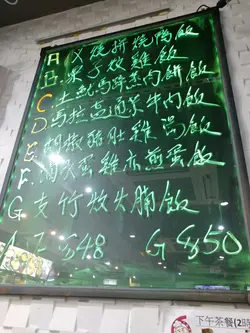 A 叉燒拼燒鴨飯
B. 栗子炆雞飯
C. 土魷馬蹄蒸肉餅飯
D. 馬拉盞通菜牛肉飯
E. 胡椒豬肚雞湯飯
F. 煎蛋飯
G 支竹炆火腩飯
$48 G $50
下午茶餐(2